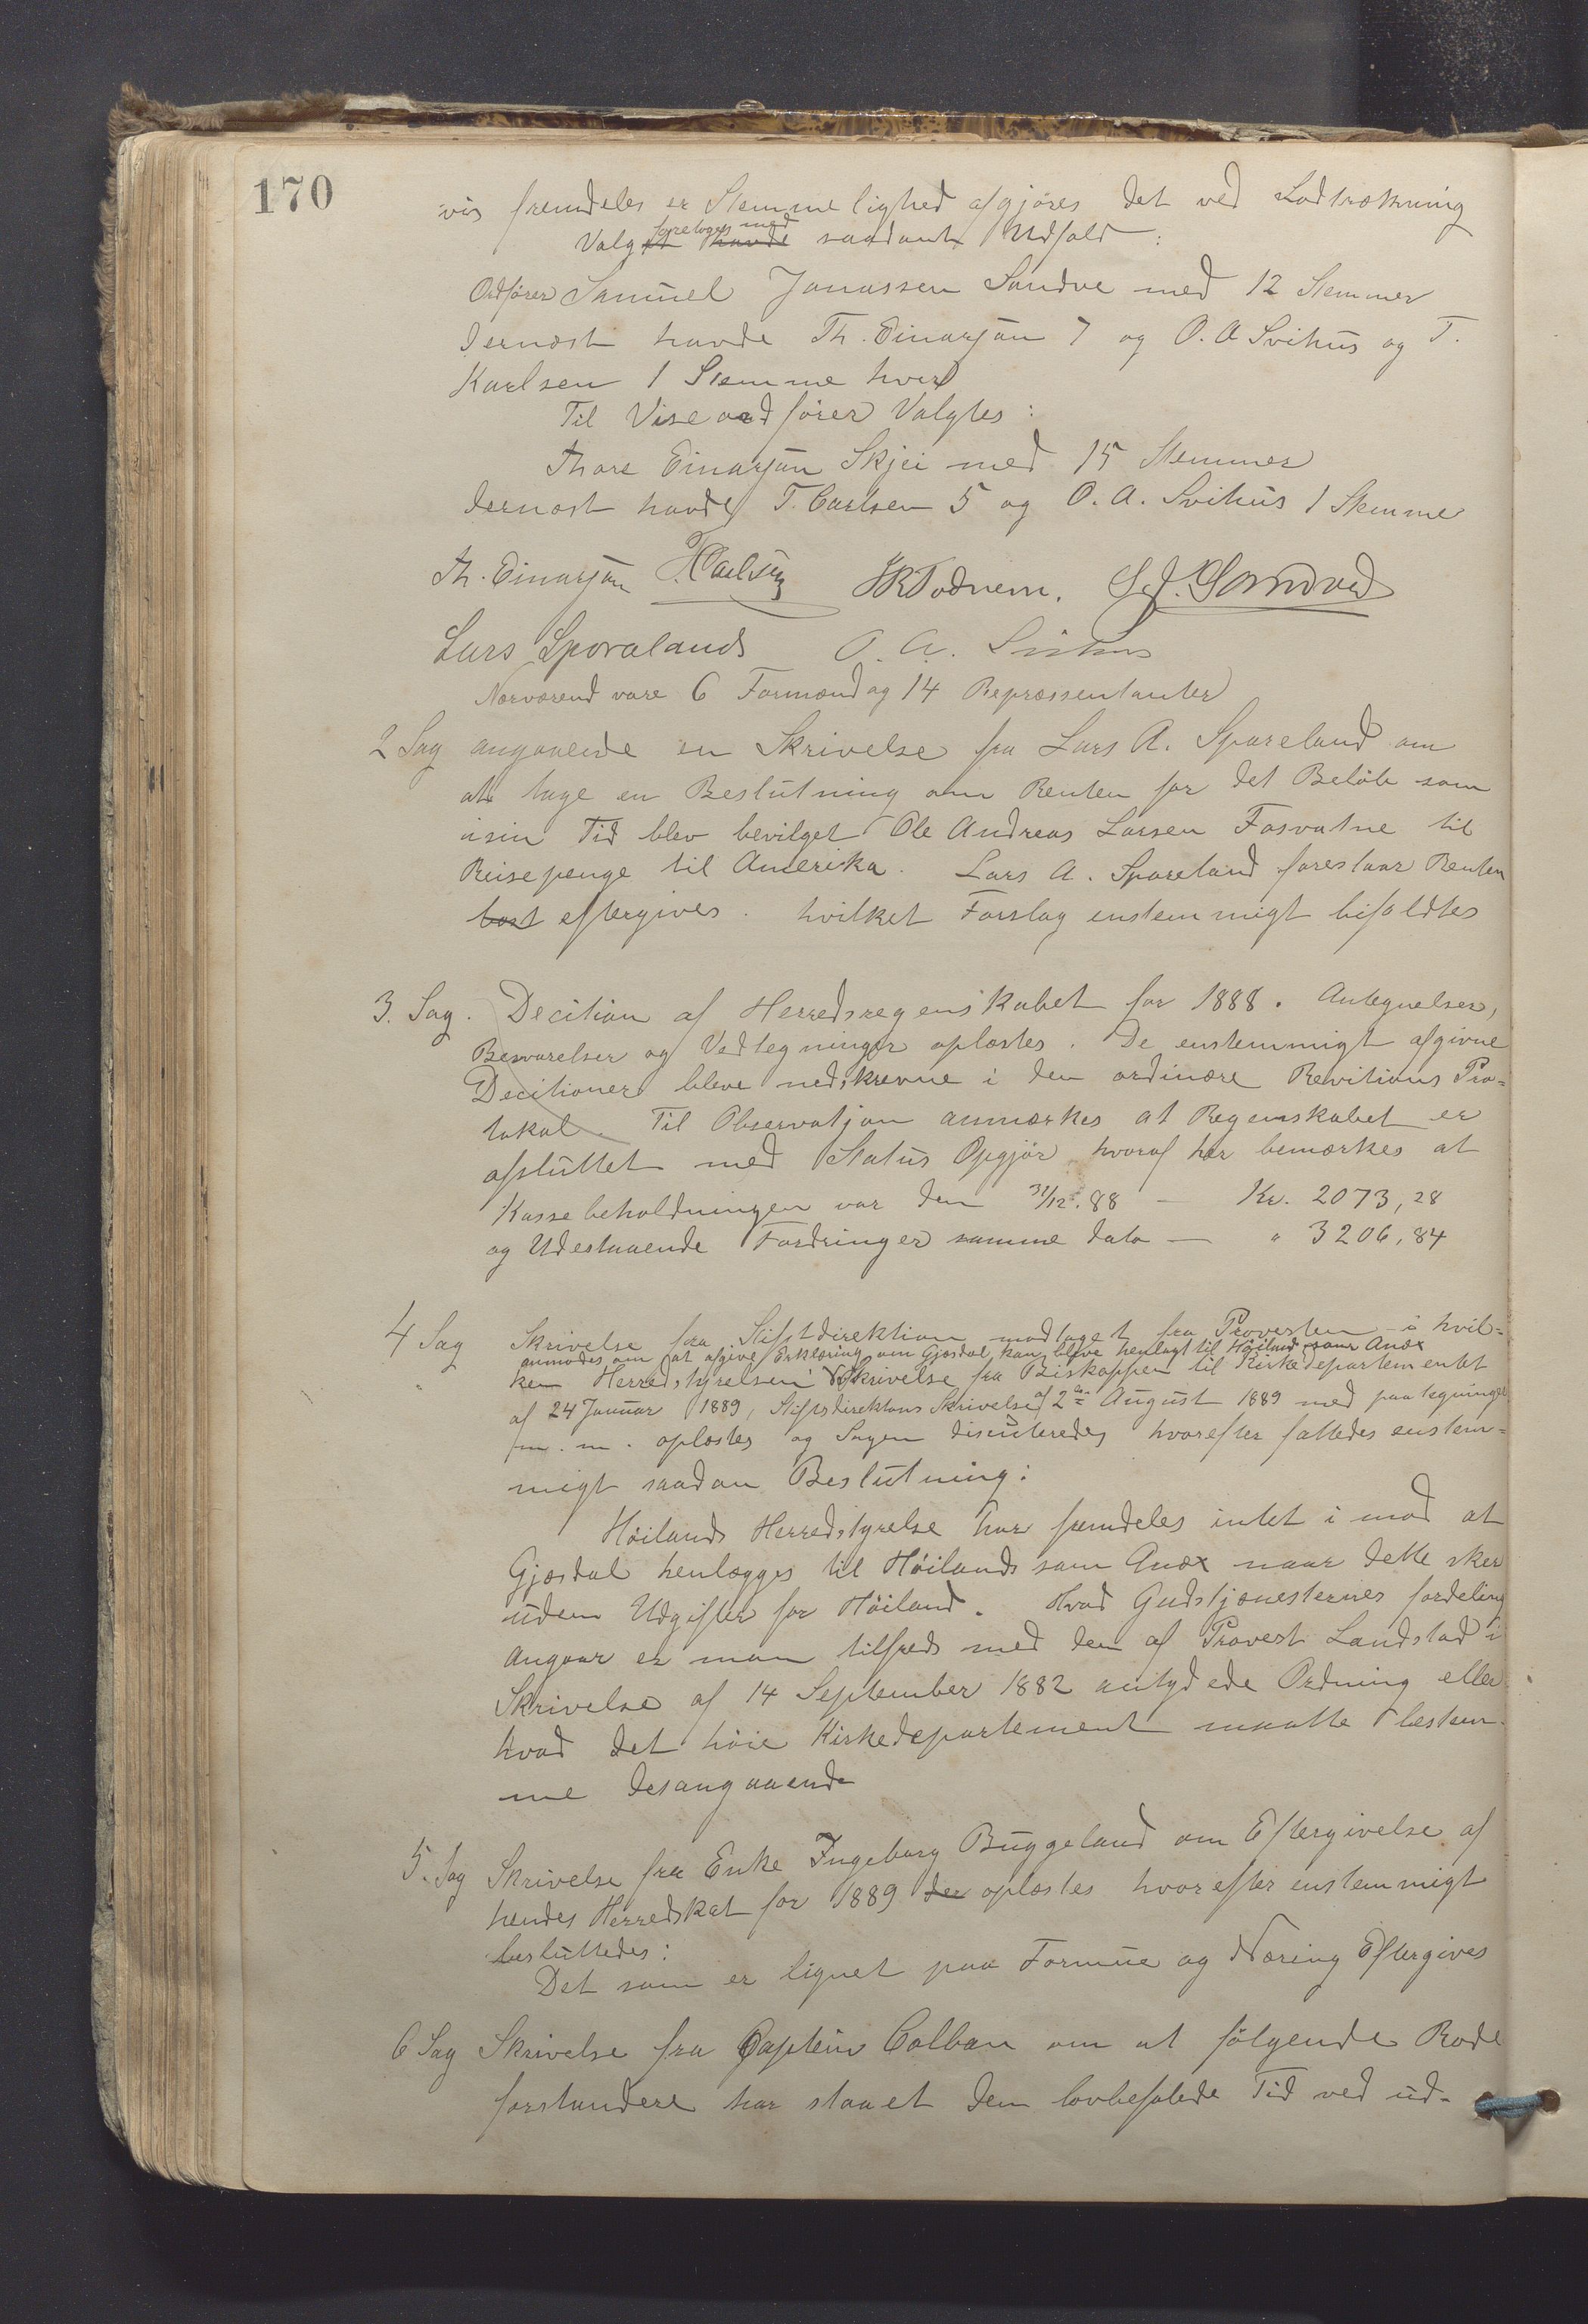 170
vis fremdeles er Stemmelighed afgjøres det ved Lodtrækning
foretoges med
Valget havde saadant Udfald :
Ordfører Samuel Jonassen Sandve med 12 Stemmer
dernæst havde Th. Einarsen 7 og O. A Svihus og T.
Karlsen 1 Stemme hver
Til Viseordfører Valgtes :
Thore Einarsen Skjei med 15 Stemmer
dernæst havde T. Carlsen 5 og O. A. Svihus 1 Stemme
Th. Einarsen T. Carlsen Todnem. S. J. Sandved
Lars Sporaland O. A. Svihus
Nærværend vare 6 Formænd og 14 Repræssentanter
2 Sag angaaende en Skrivelse fra Lars A. Sporeland om
at tage en Beslutning om Renten for det Beløb som
isin Tid blev bevilget Ole Andreas Larsen Fosvatne til
Reisepenge til Amerika. Lars A. Sporeland foreslaar Renten
bort eftergives. hvilket Forslag enstemmigt bifaldtes
3. Sag. Decition af Herredsregenskabet for 1888. Antegnelser,
Besvarelser og Vedtegninger oplæstes. De enstemmigt afgivne
Decitioner bleve nedskrevne i den ordinære Revitions Pro=
tokol. Til Observatjon anmærkes at Regenskabet er
afsluttet med Status Opgjør hvoraf her bemærkes at
Kassebeholdningen var den 31/12. 88 — Kr. 2073,28
og Udestaaende Fordringer samme dato — " 3206,84
4 Sag Skrivelse fra Stiftdirektion modtaget fra Provesten i hvil=
anmodes om at afgive Erklæring om Gjesdal kan blive henlagt til Høiland som Anex
ken Herredstyrelsen Skrivelse fra Biskoppen til Kirkedepartementet
af 24 Januar 1889, Stiftsdirektions Skrivelse af 2den August 1889 med paategninger
m. m. oplæstes og Sagen discuteredes hvorefter fattedes enstem=
migt saadan Beslutning:
Høilands Herredstyrelse har fremdeles intet i mod at
Gjesdal henlægges til Høilands som Anex naar dette sker
uden Udgifter for Høiland. Hvad Gudstjenesternes fordeling
Angaar er man tilfreds med den af Provest Landstad i
Skrivelse af 14 September 1882 antydede Ordning eller
hvad det høie Kirkedepartement maatte bestem-
me desangaaende
5. Sag Skrivelse fra Enke Ingeborg Buggeland om Eftergivelse af
hendes Herredskat for 1889 der oplæstes hvorefter enstemmigt
besluttedes:
Det som er lignet paa Formue og Næring Eftergives
6 Sag Skrivelse fra Captein Colban om at følgende Rode
forstandere har staaet den lovbefalede Tid ved ud-